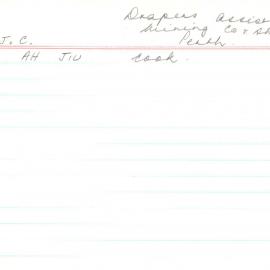 Drapers assis
Mining Co & Sh
J. C. Perth.
AH JIU cook.